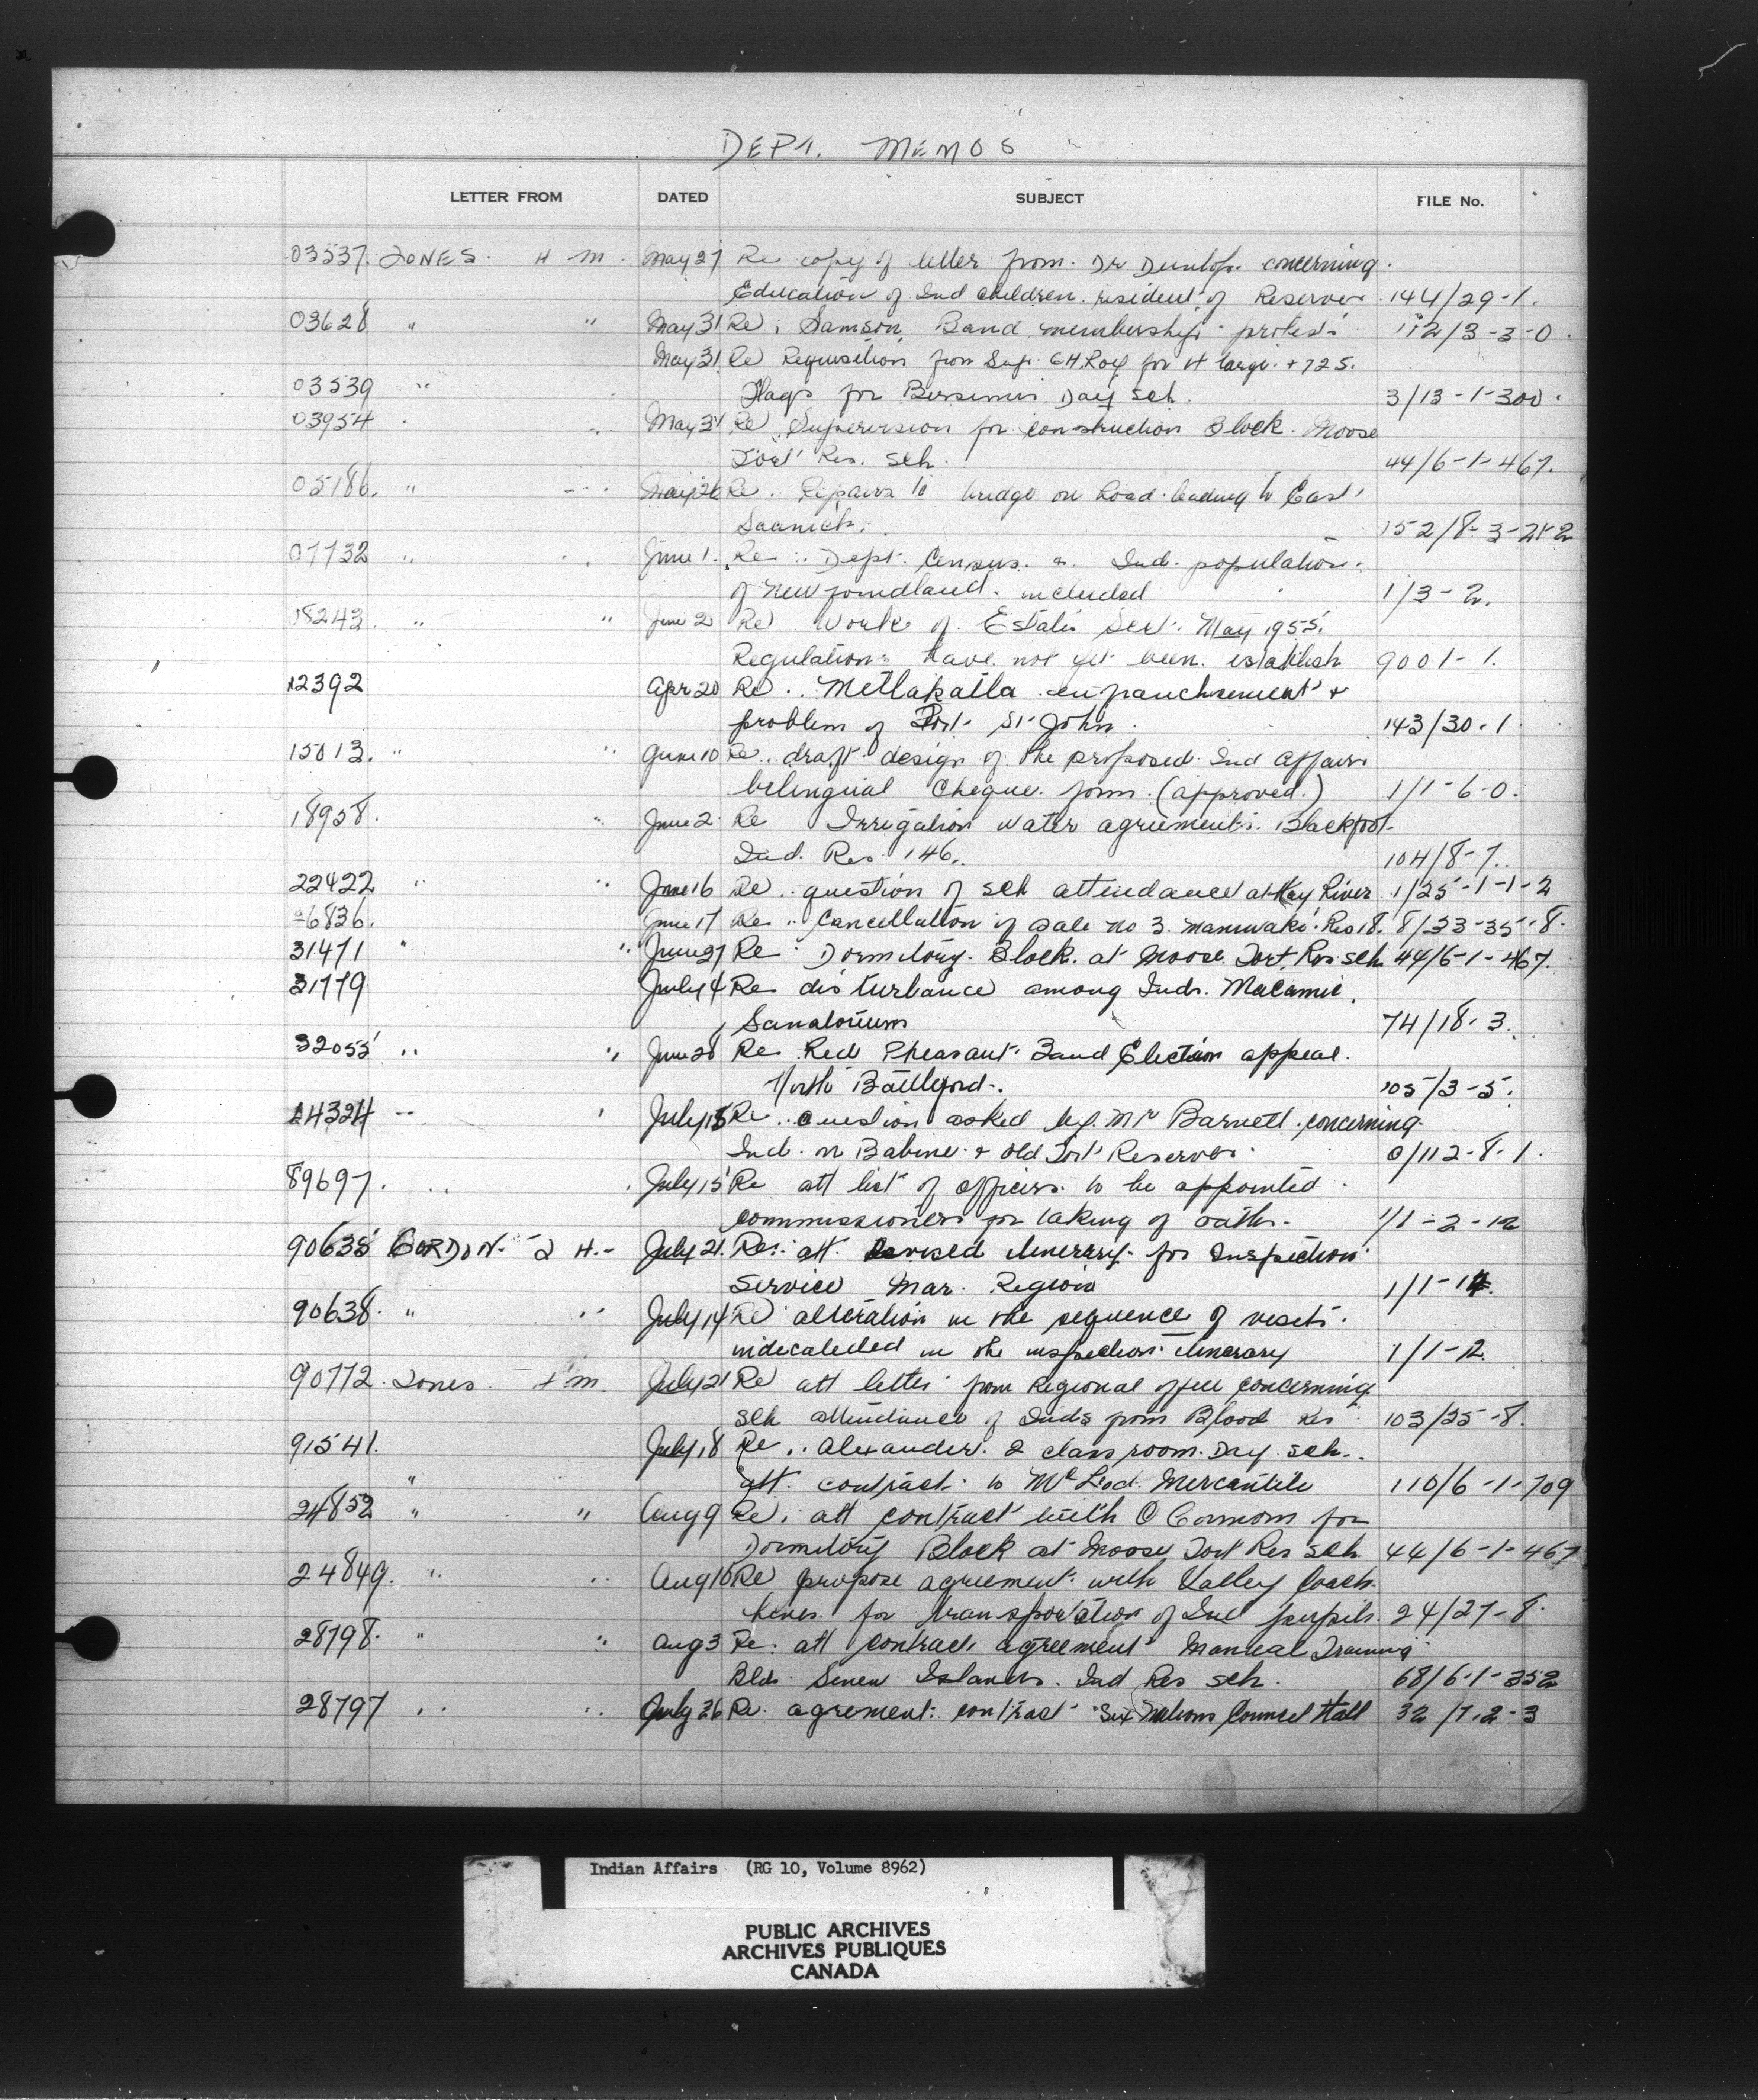 DEPT. MEMOS
LETTER FROM DATED SUBJECT FILE No.
03537. JONES. H M. May 27 Re copy of letter from. Dr Dunlop. concerning.
Education of Ind children. resident of Reserves. 144/29-1.
03628 " " May 31 Re: Samson Band membership protest 112/3-3-0.
May 31. Re Requisition from Supt. for large + 72 S.
03539 " Flags for Bersimis Day sch. 3/13-1-300.
03954 May 31 Re Supervision for construction Block. Moose
Fort Res. Sch. 44/6-1-467.
05186. " May 26 Re.. Repairs to bridge on Road leading to East
Saanich. 152/8-3-
07732 " June 1. Re.. Dept. Census. Ind. population.
of Newfoundland. included 1/3-2.
18243. " " June 2 Re Work of Estates May 1955.
Regulations have not yet been. establish 9001-1.
12392 Apr 20 Re.. Metlakatla enfranchisement +
problem of Fort St John. 143/30-1
15013. " " June 10 Re.. draft design of the proposed Ind Affairs
belingual Cheque. form. (approved.) 1/1-6-0.
18958. " June 2. Re Irrigation water agreements. Blackfoot.
Ind. Res. 146.. 104/8-7..
22422 " " June 16 Re.. question of sch attendance at Hay River 1/25-1-1-2
26836. June 17 Re.. Cancellation of sale no 3. Maniwaki. Res 18. 8/33-35-8.
31471 " " June 27 Re Dormitory. Block. at Moose Fort. Res sch 44/6-1-467.
31779 July 4 Re disturbance among Inds. Macamic
Sanatorium 74/18-3.
32055 " " June 28 Re Red Pheasant. Band Election appeal.
North Battleford. 105/3-5.
44324 " July 15 Re.. question asked by. Mr Barnett. concerning.
Ind. on Babine + Old Fort Reserves. 0/112-8-1.
89697. " July 15 Re att list of officers. to be appointed.
commissioners for taking of oaths. 1/1-2-12
90635 GORDON. J H. July 21. Re: att. Revised itinerary. for Inspection
Service Mar. Regions 1/1-12.
90638. " " July 14 Re alteration in the sequence of visits.
in the inspection itinerary 1/1-12.
90772. Jones. H m. July 21 Re att letter from Regional office concerning
sch attendance of Inds from Blood Res 103/25-8.
91541. July 18 Re.. Alexander. 2 class room. Day sch..
" att. contract. to McLeod. Mercantile 110/6-1-709
24852 " " Aug 9 Re. att contract with for
Dormitory Block at Moose Fort Res sch 44/6-1-467
24849. " " Aug 10 Re propose agreement. with Valley Coach.
Lines. for transportation of Ind pupils. 24/27-8.
28798. " " Aug 3 Re. att contract agreement Manual Training
Bld. Seven Islands. Ind Res sch. 68/6-1-352
28797 " " July 26 Re. agrement. contract Six Nations Council Hall 32/7.2-3
Indian Affairs (RG 10, Volume 8962)
PUBLIC ARCHIVES
ARCHIVES PUBLIQUES
CANADA